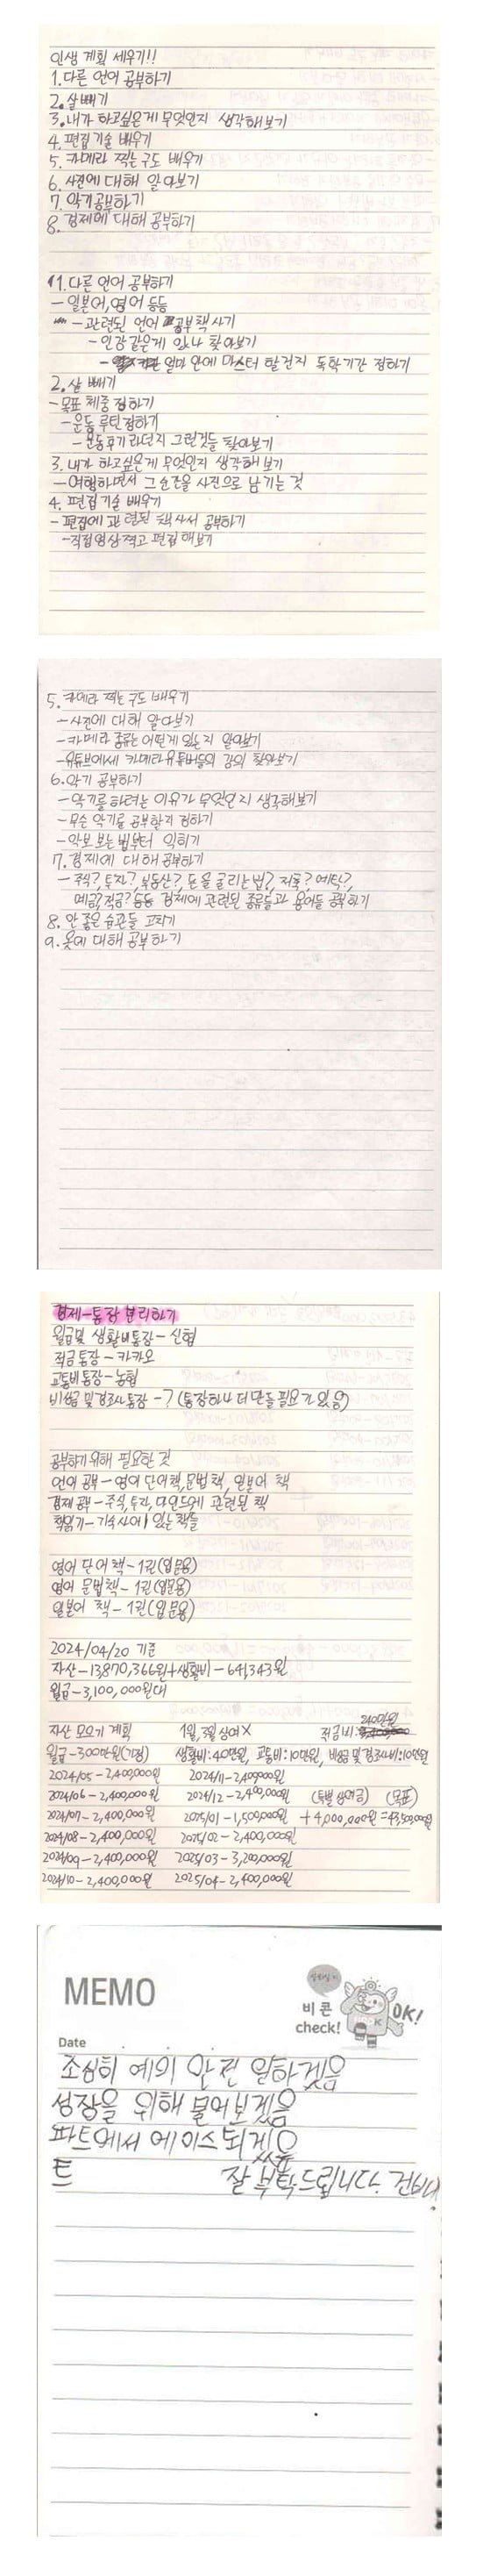 인생 계획 세우기!!
1. 다른 언어 공부하기
2. 살 빼기
3. 내가 하고싶은게 무엇인지 생각해보기
4. 편집 기술 배우기
5. 카메라 찍는 구도 배우기
6. 사진에 대해 알아보기
7. 악기 공부하기
8. 경제에 대해 공부하기
1. 다른 언어 공부하기
- 일본어, 영어 등등
- 관련된 언어 공부 책 사기
- 인강 같은게 있나 찾아보기
- 얼마 안에 마스터 할건지 독학기간 정하기
2. 살 빼기
- 목표 체중 정하기
- 운동 루틴 정하기
- 운동 후기라던지 그런것들 찾아보기
3. 내가 하고싶은게 무엇인지 생각해보기
- 여행하면서 그 순간을 사진으로 남기는 것
4. 편집 기술 배우기
- 편집에 관련된 책 사서 공부하기
- 직접 영상 찍고 편집 해보기
5. 카메라 찍는 구도 배우기
- 사진에 대해 알아보기
- 카메라 종류는 어떤게 있는지 알아보기
- 유튜브에서 카메라 유튜버들의 강의 찾아보기
6. 악기 공부하기
- 악기를 하려는 이유가 무엇인지 생각해보기
- 무슨 악기를 공부할지 정하기
- 악보 보는 법부터 익히기
7. 경제에 대해 공부하기
- 주식? 투자? 부동산? 돈을 굴리는 법? 저축? 예탁?
예금? 적금? 등등 경제에 관련된 종류들과 용어들 공부하기
8. 안 좋은 습관들 고치기
9. 옷에 대해 공부하기
경제 - 통장 분리하기
월급 및 생활비통장 - 신협
적금통장 - 카카오
교통비통장 - 농협
비상금 및 경조사 통장 - ? (통장 하나 더 만들 필요가 있음)
공부하기 위해 필요한 것
언어 공부 - 영어 단어책, 문법 책, 일본어 책
경제 공부 - 주식, 투자, 마인드에 관련된 책
책읽기 - 기숙사에 있는 책들
영어 단어 책 - 1권 (입문용)
영어 문법책 - 1권 (입문용)
일본어 책 - 1권 (입문용)
2024/04/20 기준
자산 - 13,870,366원 + 생활비 - 641,343원
월급 - 3,100,000원대
240만원
자산 모으기 계획 1월, 3월 상여X 적금비:
월급 - 300만원(가정) 생활비: 40만원, 교통비: 10만원, 비상금 및 경조사비: 10만원
2024/05 - 2,400,000원 2024/11 - 2,400,000원
2024/06 - 2,400,000원 2024/12 - 2,400,000원 (특별 상여금) (목표)
2024/07 - 2,400,000원 2025/01 - 1,500,000원 + 4,000,000원 = 43,500,000원
2024/08 - 2,400,000원 2025/02 - 2,400,000원
2024/09 - 2,400,000원 2025/03 - 3,200,000원
2024/10 - 2,400,000원 2025/04 - 2,400,000원
MEMO
비콘
check!
OK!
Date
조심히 예의 안전 일하겠음
성장을 위해 물어보겠음
파트에서 에이스 되겠음
트 잘 부탁드립니다.